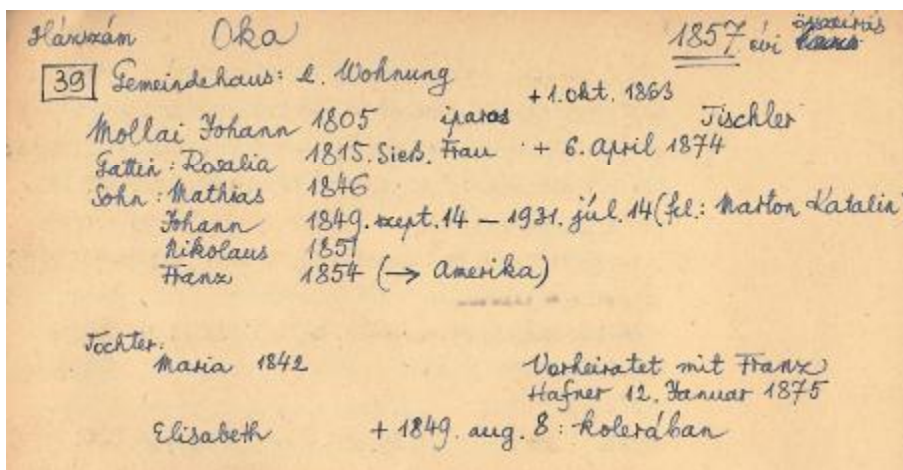 Házszám Oka 1857 évi összeírás
39 Gemeindehaus: 2. Wohnung
+ 1. okt. 1863
Mollai Johann 1805 iparos Tischler
Gattin: Rosalia 1815. Sieß. Frau + 6. April 1874
Sohn: Mathias 1846
Johann 1849. szept. 14 – 1931. júl. 14 (fel.: Marton Katalin)
Nikolaus 1851
Franz 1854 (→ Amerika)
Tochter:
Maria 1842 Verheiratet mit Franz
Hafner 12. Januar 1875
Elisabeth + 1849. aug. 8: kolerában